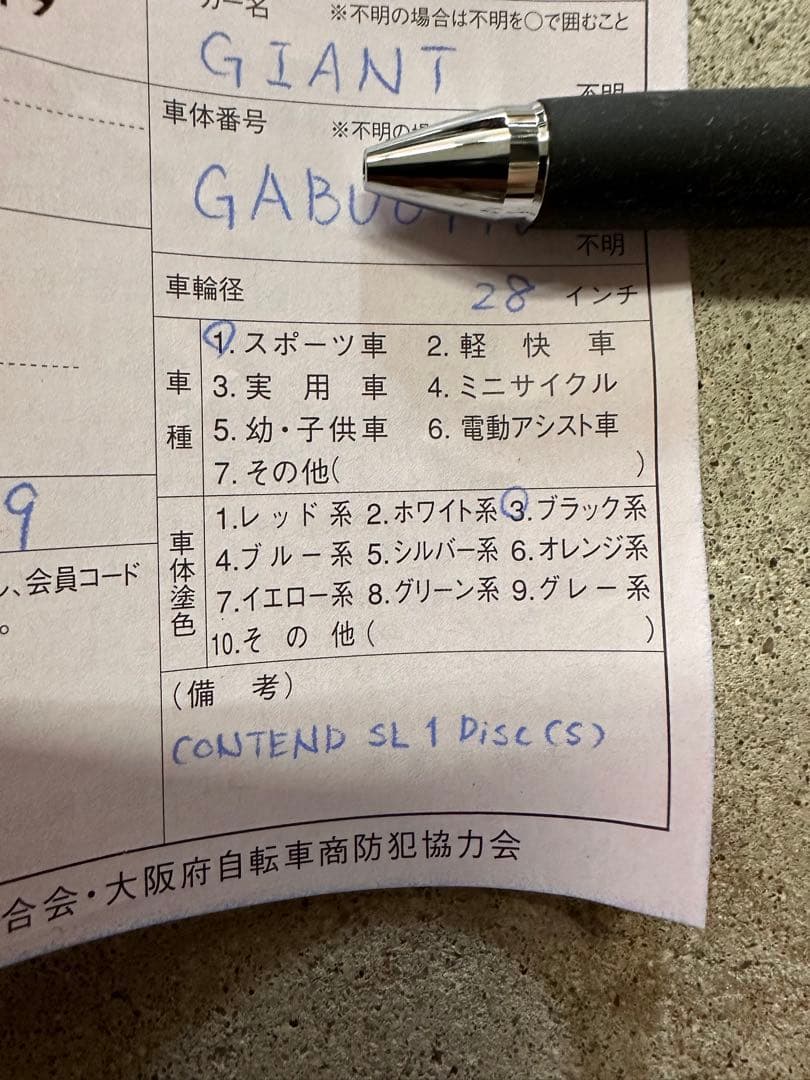 カー名 ※不明の場合は不明を○で囲むこと
GIANT
不明
車体番号 ※不明の
GABU
不明
車輪径 28 インチ
車種
1. スポーツ車 2. 軽快車
3. 実用車 4. ミニサイクル
5. 幼・子供車 6. 電動アシスト車
7. その他( )
9
車体塗色
1.レッド系 2.ホワイト系 3.ブラック系
4.ブルー系 5.シルバー系 6.オレンジ系
7.イエロー系 8.グリーン系 9.グレー系
10.その他( )
、会員コード
。
(備考)
CONTEND SL 1 Disc (S)
合会・大阪府自転車商防犯協力会